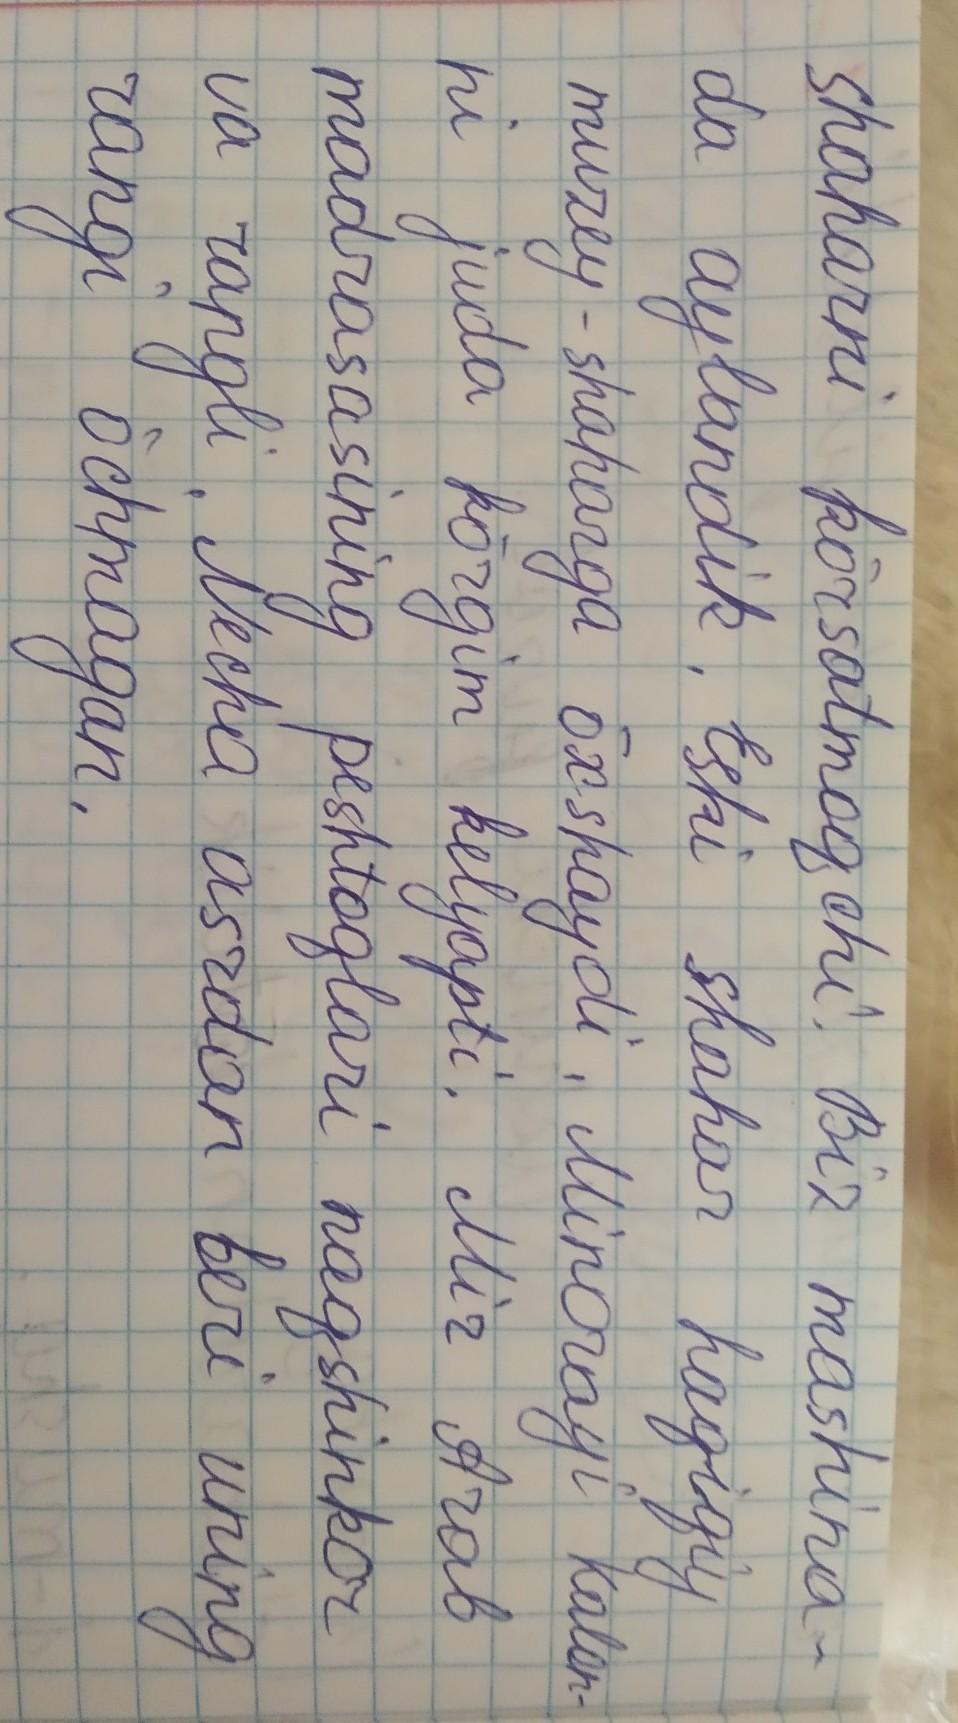 shaharni kōrsatmoqchi. Biz mashina-
da aylandik. Eski shahar haqiqiy
muzey-shaharga ōxshaydi. Minorayi Kalon-
ni juda kōrgim kelyapti. Mir Arab
madrasasining peshtoqlari naqshinkor
va rangli. Necha asrdan beri uning
rangi ōchmagan.